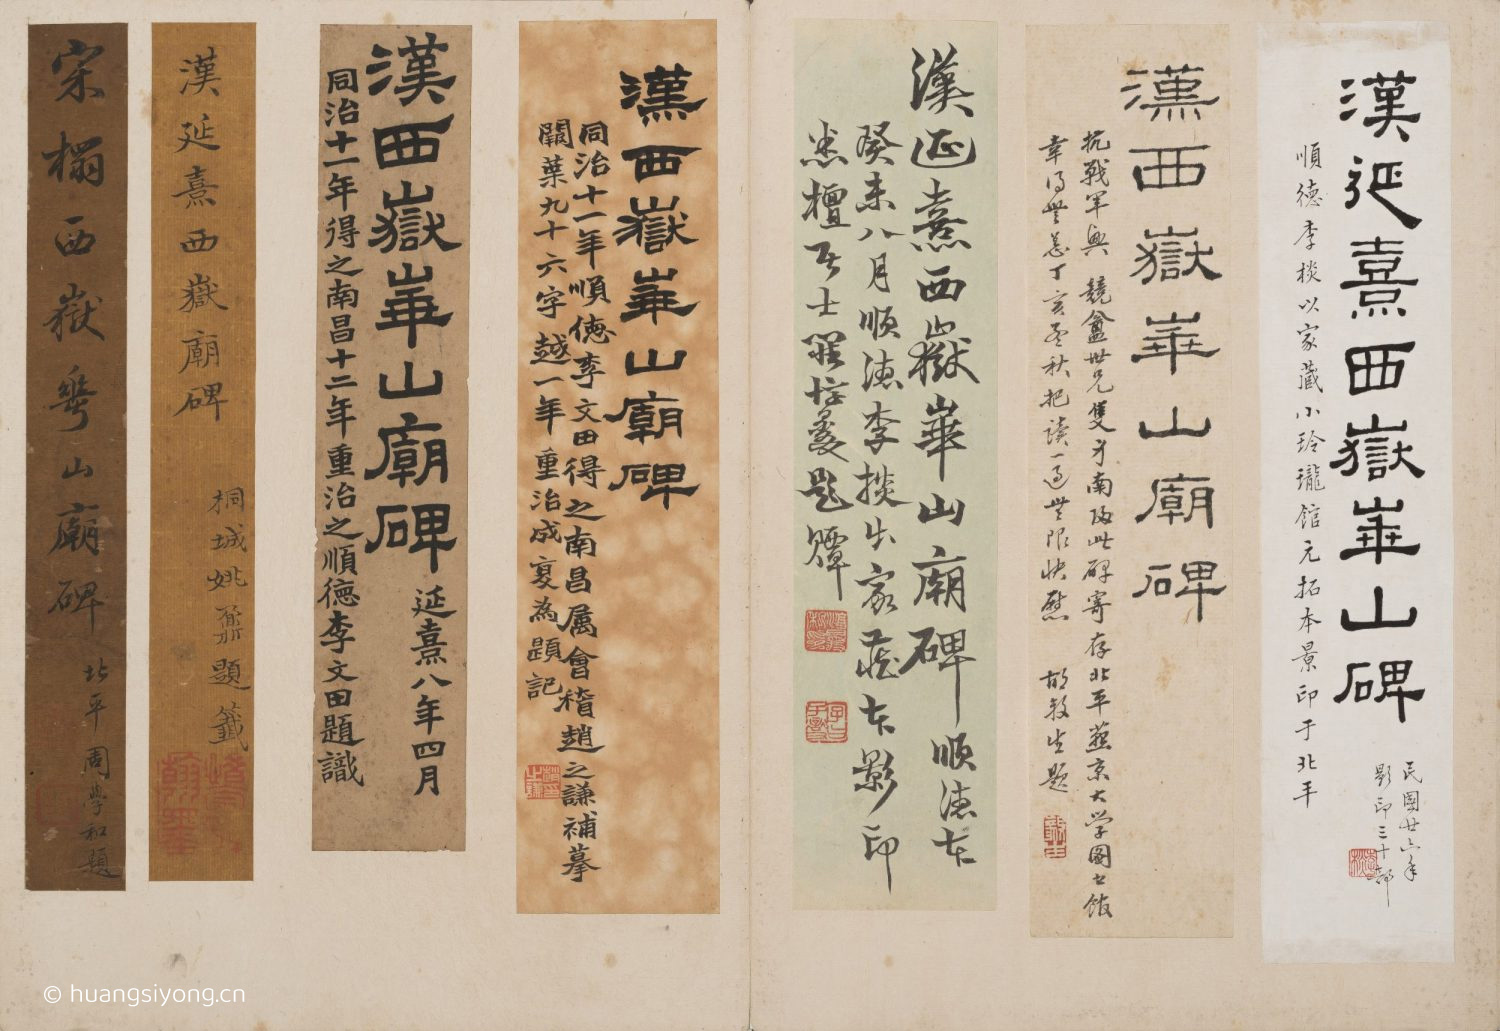 漢延熹西嶽華山碑
順德李棪以家藏小玲瓏館元拓本景印于北平
民國廿六年
影印三十部
漢西嶽華山廟碑
抗戰軍興 競盦世兄隻身南及此碑寄存北平燕京大学圖書館
幸得無恙丁亥孟秋把读一過無限快慰 胡毅生題
漢延熹西嶽華山廟碑 順德本
癸未八月順德李棪出家藏本影印
羅惇㬊題
漢西嶽華山廟碑
同治十一年順德李文田得之南昌属會稽趙之謙補摹
闕葉九十六字越一年重治成夏為題記
漢西嶽華山廟碑 延熹八年四月
同治十一年得之南昌十二年重治之順德李文田題識
漢延熹西嶽廟碑
桐城姚鼐題籤
宋榻西嶽華山廟碑
北平周學和題
© huangsiyong.cn